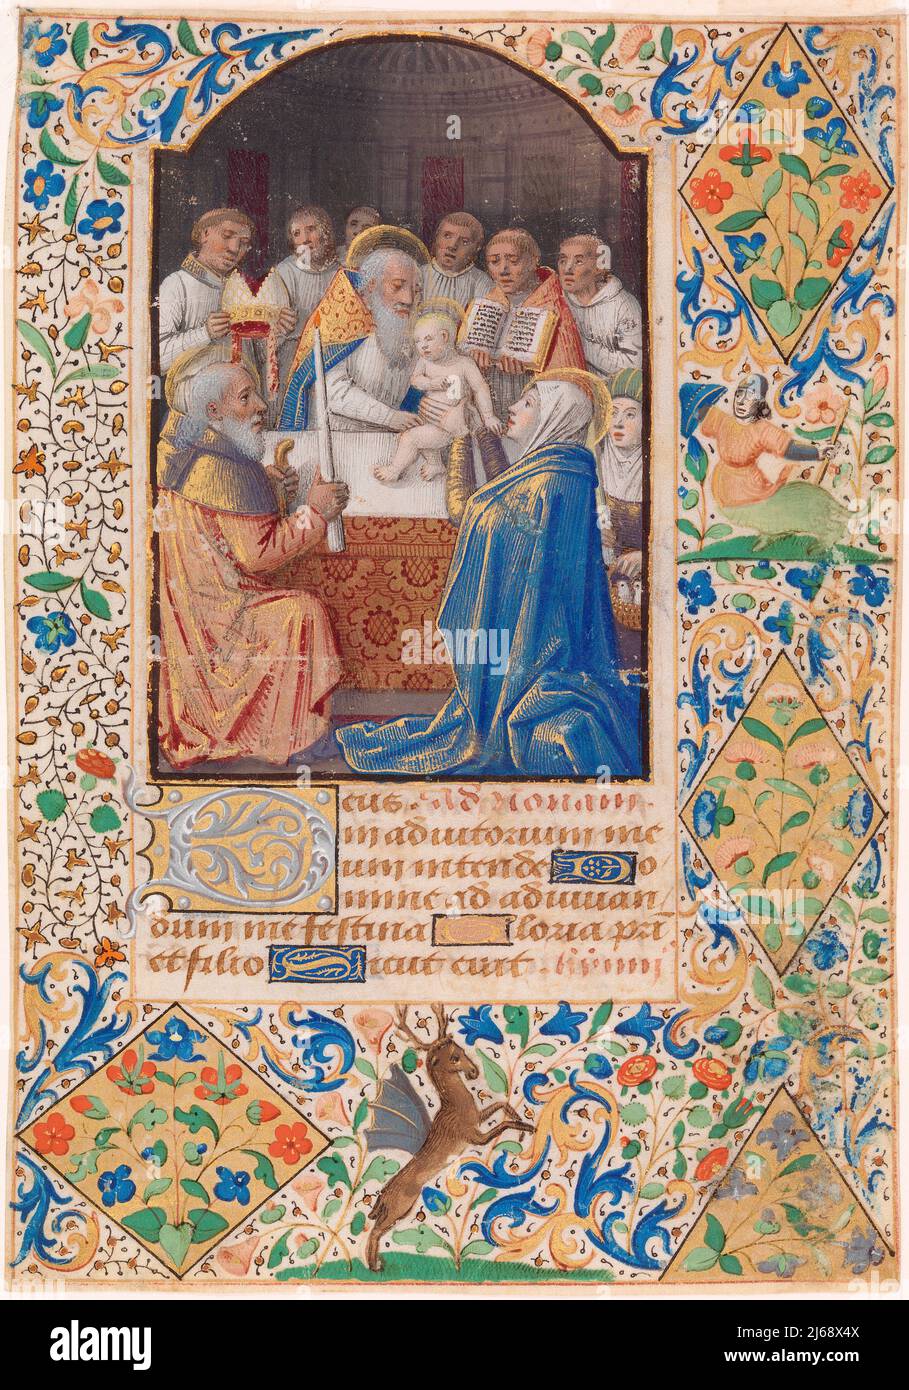 Deus. Ad nonam.
in adiutorium me
um intende o
mine ad adiuuan
dum me festina loria pri
et filio Sicut erat
alamy
Image ID: 2J68X4X
www.alamy.com